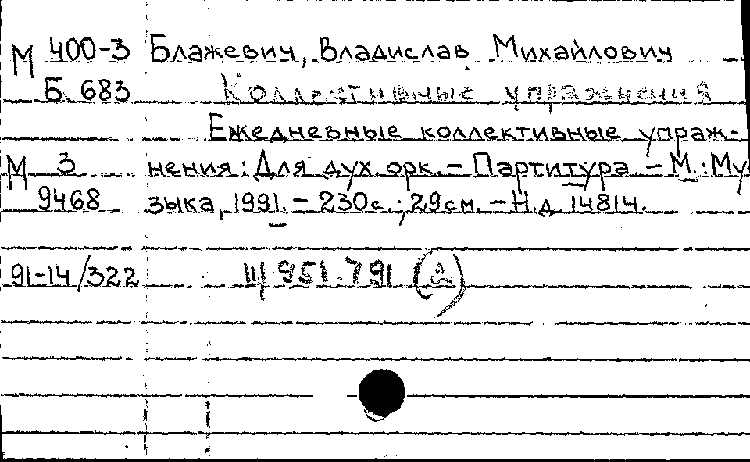 М 400-3 Блажевич, Владислав Михайлович
Б 683 Коллективные упражнения
Ежедневные коллективные упраж-
М 3 нения: Для дух. орк. – Партитура – М.: Му
9468 зыка, 1991. – 230с.; 29см. – Н.д. 14814.
91-14/322 Щ 951.791 (2)